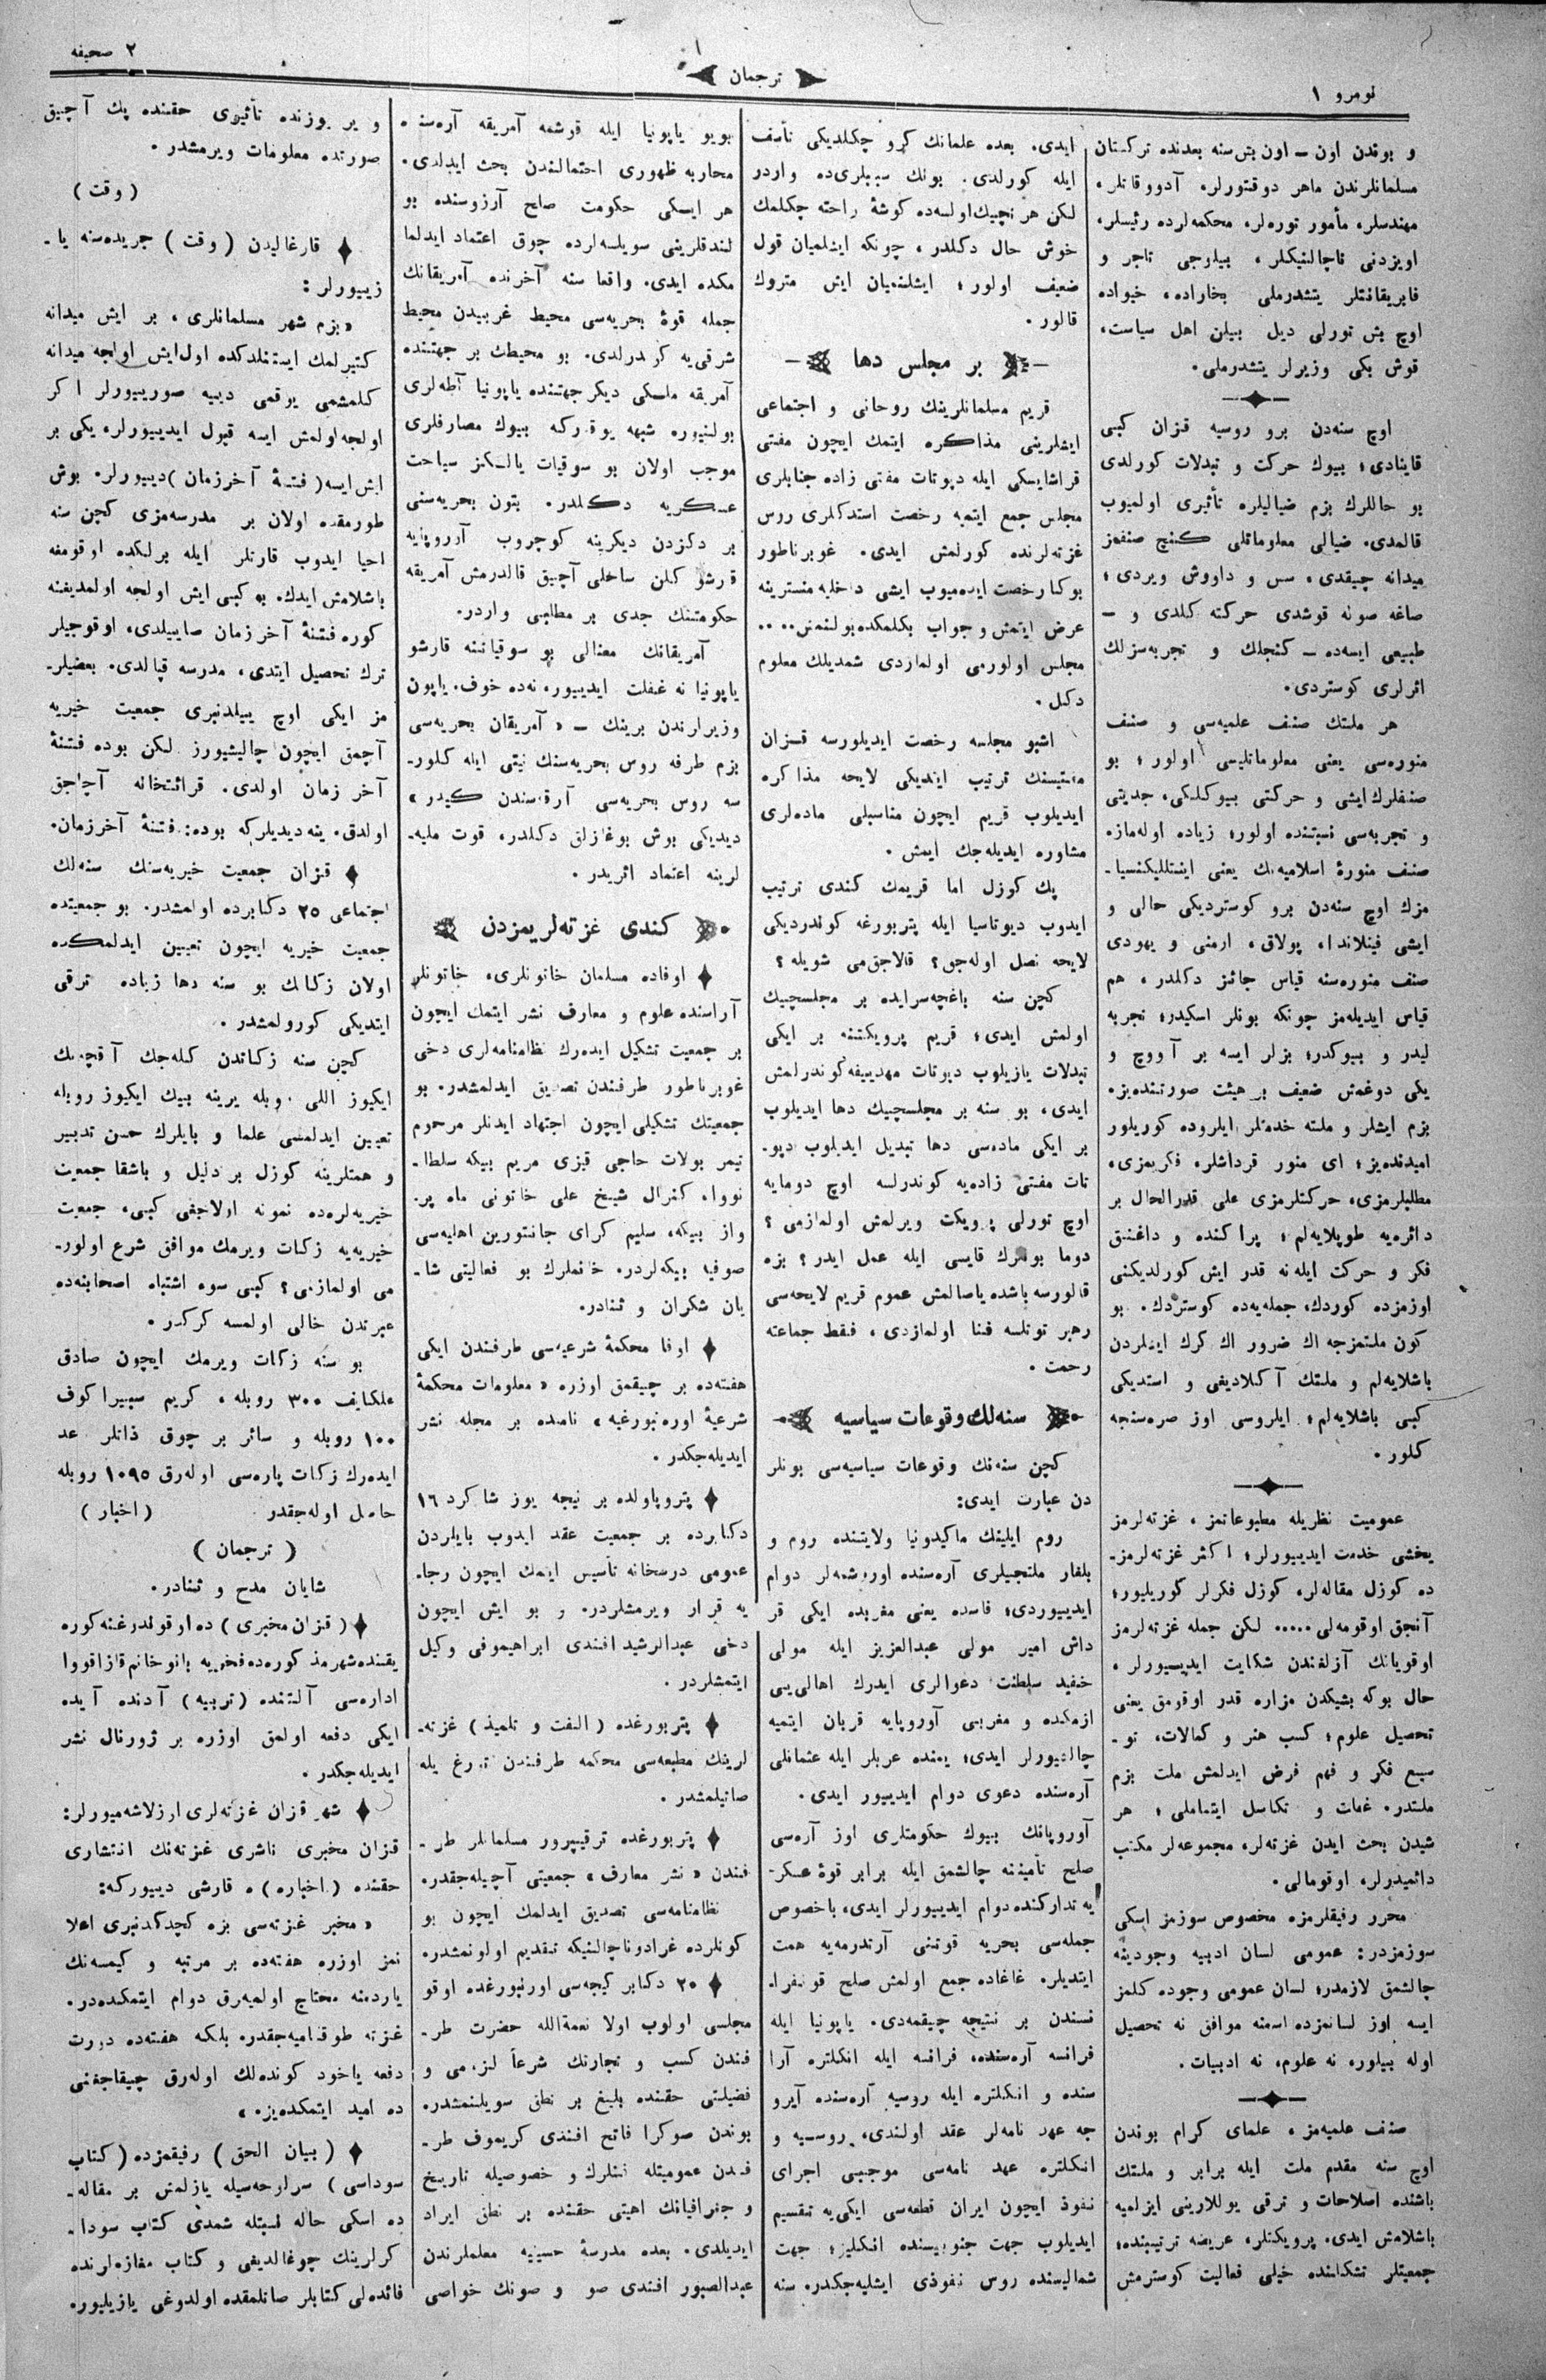 نومرو ۱
ترجمان
۲ صحیفه
و بوندن اون ــ اون بش سنه بعدنده ترکستان
مسلمانلرندن ماهر دوقتورلر، آدووقاتلر،
مهندسلر، مأمور توره‌لر، محکمه‌لرده رئیسلر،
اویزدنی ناچالنیکلر، بیلوجی تاجر و
فابریقانتلر یتشدرملی بخاراده، خیواده
اوچ بش تورلی دیل بیلن اهل سیاست،
قوش بکی وزیرلر یتشدرملی.
اوچ سنه‌دن برو روسیه قزان کبی
قاینادی؛ بیوك حرکت و تبدلات کورلدی
بو حاللرك بزم ضیالیلره تأثیری اولمیوب
قالمدی. ضیالی معلوماتلی کنج صنفمز
میدانه چیقدی، سس و داووش ویردی؛
صاغه صوله قوشدی حرکته کلدی و ــ
طبیعی ایسه‌ده ــ کنجلك و تجربه‌سزلك
اثرلری کوستردی.
هر ملتك صنف علمیه‌سی و صنف
منوره‌سی یعنی معلوماتلیسی اولور؛ بو
صنفلرك ایشی و حرکتی بیوکلکی، جدیتی
و تجربه‌سی نسبتنده اولور؛ زیاده اوله‌ماز.
صنف منورهٔ اسلامیه‌نك یعنی اینتللیکنسیا-
مزك اوچ سنه‌دن برو کوستردیکی حالی و
ایشی فینلاندا، پولاق، ارمنی و یهودی
صنف منوره‌سنه قیاس جائز دکلدر، هم
قیاس ایدیله‌مز چونکه بونلر اسکیدر؛ تجربه
لیدر و بیوکدر؛ بزلر ایسه بر آووچ و
یکی دوغمش ضعیف بر هیئت صورتنده‌یز.
بزم ایشلر و ملته خدمتلر ایلروده کوریلور
امیدنده‌یز؛ ای منور قرداشلر، فکریمزی،
مطلبلرمزی، حرکتلرمزی علی قدر الحال بر
دائره‌یه طوپلایه‌لم؛ پراکنده و داغنق
فکر و حرکت ایله نه قدر ایش کورلدیکنی
اوزمزده کوردك، جمله‌یه‌ده کوستردك. بو
کون ملتمزجه اك ضرور اك کرك ایشلردن
باشلایه‌لم و ملتك آکلادیغی و استدیکی
کبی باشلایه‌لم؛ ایلروسی اوز صره‌سنجه
کلور.
عمومیت نظریله مطبوعاتمز، غزته‌لرمز
یخشی خدمت ایدییورلر؛ اکثر غزته‌لرمز-
ده کوزل مقاله‌لر، کوزل فکرلر کوریلیور؛
آنجق اوقومه‌لی..... لکن جمله غزته‌لرمز
اوقویانك آزلغندن شکایت ایدییورلر،
حال بوکه بشیکدن مزاره قدر اوقومق یعنی
تحصیل علوم؛ کسب هنر و کمالات، تو-
سیع فکر و فهم فرض ایدلمش ملت بزم
ملتدر. غفلت و تکاسل ایتماملی؛ هر
شیدن بحث ایدن غزته‌لر، مجموعه‌لر مکتب
دائمیدرلر، اوقومالی.
محرر رفیقلرمزه مخصوص سوزمز اسکی
سوزمزدر: عمومی لسان ادبیه وجودینه
چالشمق لازمدر؛ لسان عمومی وجوده کلمز
ایسه اوز لسانمزده اسمنه موافق نه تحصیل
اوله بیلور، نه علوم، نه ادبیات.
صنف علمیه‌مز، علمای کرام بوندن
اوچ سنه مقدم ملت ایله برابر و ملتك
باشنده اصلاحات و ترقی یوللارینی ایزلمیه
باشلامش ایدی. پرویکتلر، عریضه ترتیبنده؛
جمعیتلر تشکلنده خیلی فعالیت کوسترمش
ایدی. بعده علمانك کرو چکلدیکی تأسف
ایله کورلدی. بونك سببلری‌ده واردر
لکن هر نچیك اولسه‌ده کوشهٔ راحته چکلمك
خوش حال دکلدر، چونکه ایشلمیان قول
ضعیف اولور؛ ایشلنمیان ایش متروك
قالور.
بر مجلس دها
قریم مسلمانلرینك روحانی و اجتماعی
ایشلرینی مذاکره ایتمك ایچون مفتی
قراشایسکی ایله دپوتات مفتی زاده جنابلری
مجلس جمع ایتمیه رخصت استدکلری روس
غزته‌لرنده کورلمش ایدی. غوبرناطور
بوکا رخصت ایده‌میوب ایشی داخلیه منسترینه
عرض ایتمش و جواب بکلمکده بولنمش....
مجلس اولورمی اولمازدی شمدیلك معلوم
دکل.
اشبو مجلسه رخصت ایدیلورسه قزان
مفتیسنك ترتیب ایتدیکی لایحه مذاکره
ایدیلوب قریم ایچون مناسبلی ماده‌لری
مشاوره ایدیله‌جك ایمش.
پك کوزل اما قریمك کندی ترتیب
ایدوب دپوتاسیا ایله پتربورغه کوندردیکی
لایحه نصل اوله‌جق؟ قالاجق‌می شویله؟
کچن سنه باغچه‌سرایده بر مجلسچیك
اولمش ایدی؛ قریم پرویکتنه بر ایکی
تبدلات یازیلوب دپوتات مهدییفه کوندرلمش
ایدی، بو سنه بر مجلسچیك دها ایدیلوب
بر ایکی ماده‌سی دها تبدیل ایدیلوب دپو-
تات مفتی زاده‌یه کوندرلسه اوچ دومایه
اوچ تورلی پرویکت ویرلمش اولمازمی؟
دوما بونلرك قایسی ایله عمل ایدر؟ بزه
قالورسه باشده یاصالمش عموم قریم لایحه‌سی
رهبر توتلسه فنا اولمازدی، فقط جماعته
رحمت.
سنه‌لك وقوعات سیاسیه
کچن سنه‌نك وقوعات سیاسیه‌سی بونلر
دن عبارت ایدی:
روم ایلینك ماکیدونیا ولایتنده روم و
بلغار ملتجیلری آره‌سنده اوروشمه‌لر دوام
ایدییوردی؛ فاسده یعنی مغربده ایکی قر
داش امیر مولی عبدالعزیز ایله مولی
حفید سلطنت دعوالری ایدرك اهالی‌یی
ازمکده و مغربی آوروپایه قربان ایتمیه
چالشیورلر ایدی؛ یمنده عربلر ایله عثمانلی
آره‌سنده دعوی دوام ایدییور ایدی.
آوروپانك بیوك حکومتلری اوز آره‌سی
صلح تأمیننه چالشمق ایله برابر قوهٔ عسکر-
یه تدارکنده دوام ایدییورلر ایدی، باخصوص
جمله‌سی بحریه قوتنی آرتدرمه‌یه همت
ایتدیلر. غاغاده جمع اولمش صلح قونفرا-
نسندن بر نتیجه چیقمه‌دی. یاپونیا ایله
فرانسه آره‌سنده، فرانسه ایله انکلتره آرا
سنده و انکلتره ایله روسیه آره‌سنده آیرو
جه عهد نامه‌لر عقد اولندی، روسیه و
انکلتره عهد نامه‌سی موجبی اجرای
نفوذ ایچون ایران قطعه‌سی ایکی‌یه تقسیم
ایدیلوب جهت جنوبیسنده انکلیز؛ جهت
شمالیسنده روس نفوذی ایشلیه‌جکدر. سنه
بویو یاپونیا ایله قوشمه آمریقه آره‌سنه
محاربه ظهوری احتمالندن بحث ایدلدی.
هر ایسکی حکومت صلح آرزوسنده بو
لندقلرینی سویلسه‌لرده چوق اعتماد ایدلما
مکده ایدی. واقعا سنه آخرنده آمریقانك
جمله قوهٔ بحریه‌سی محیط غربیدن محیط
شرقی‌یه کوندرلدی. بو محیطك بر جهتنده
آمریقه ملکی دیکر جهتنده یاپونیا آطه‌لری
بولنیور، شبهه یوقدرکه بیوك مصارفلری
موجب اولان بو سوقیات یالکز سیاحت
عسکریه دکلدر. بتون بحریه‌سنی
بر دکزدن دیکرینه کوچروب آوروپایه
قرشو کلن ساحلی آچیق قالدرمش آمریقه
حکومتنك جدی بر مطلبی واردر.
آمریقانك معنالی بو سوقیاتنه قارشو
یاپونیا نه غفلت ایدییور، نه‌ده خوف. یاپون
وزیرلرندن برینك ــ «آمریقان بحریه‌سی
بزم طرفه روس بحریه‌سنك نیتی ایله کلور-
سه روس بحریه‌سی آرقه‌سندن کیدر»
دیدیکی بوش بوغازلق دکلدر، قوت ملیه-
لرینه اعتماد اثریدر.
کندی غزته‌لریمزدن
اوفاده مسلمان خاتونلری، خاتونلر
آراسنده علوم و معارف نشر ایتمك ایچون
بر جمعیت تشکیل ایده‌رك نظامنامه‌لری دخی
غوبرناطور طرفندن تصدیق ایدلمشدر. بو
جمعیتك تشکیلی ایچون اجتهاد ایدنلر مرحوم
تیمر بولات حاجی قیزی مریم بیکه سلطا-
نووا، کنرال شیخ علی خاتونی ماه پر-
واز بیکه، سلیم کرای جانتورین اهلیه‌سی
صوفیه بیکه‌لردر. خانملرك بو فعالیتی شا-
یان شکران و ثنادر.
اوفا محکمهٔ شرعیه‌سی طرفندن ایکی
هفته‌ده بر چیقمق اوزره «معلومات محکمهٔ
شرعیهٔ اوره‌نبورغیه» نامنده بر مجله نشر
ایدیله‌جکدر.
پتروپاولده بر نیجه یوز شاکرد ۱٦
دکابرده بر جمعیت عقد ایدوب بایلردن
عمومی درسخانه تأسیس ایتمك ایچون رجا-
یه قرار ویرمشلردر. و بو ایش ایچون
دخی عبدالرشید افندی ابراهیموفی وکیل
ایتمشلردر.
پتربورغده (الفت و تلمیذ) غزته-
لرینك مطبعه‌سی محکمه طرفندن تورغ یله
صاتیلمشدر.
پتربورغده ترقیپرور مسلمانلر طر-
فندن «نشر معارف» جمعیتی آچیله‌جقدر.
نظامنامه‌سی تصدیق ایدلمك ایچون بو
کونلرده غرادوناچالنیکه تقدیم اولونمشدر.
۲۰ دکابر کیجه‌سی اورنبورغده اوقو
مجلسی اولوب اولا نعمة‌الله حضرت طر-
فندن کسب و تجارتك شرعاً لزومی و
فضیلتی حقنده بلیغ بر نطق سویلنمشدر.
بوندن صوکرا فاتح افندی کریموف طر-
فندن عمومیتله فنلرك و خصوصیله تاریخ
و جغرافیانك اهمیتی حقنده بر نطق ایراد
ایدیلدی. بعده مدرسهٔ حسینیه معلملرندن
عبدالصبور افندی صو و صونك خواصی
و یر یوزنده تأثیری حقنده پك آچیق
صورتده معلومات ویرمشدر.
(وقت)
قارغالیدن (وقت) جریده‌سنه یا-
زییورلر:
«بزم شهر مسلمانلری، بر ایش میدانه
کتیرلمك ایستنلدکده اول ایش اولجه میدانه
کلمشمی یوقمی دییه صورییورلر اکر
اولجه اولمش ایسه قبول ایدییورلر، یکی بر
ایش ایسه (فتنهٔ آخرزمان) دییورلر. بوش
طورمقده اولان بر مدرسه‌مزی کچن سنه
احیا ایدوب قارتلر ایله برلکده اوقومغه
باشلامش ایدك. بو کبی ایش اولجه اولمدیغنه
کوره فتنهٔ آخر زمان صاییلدی، اوقوجیلر
ترك تحصیل ایتدی، مدرسه قپالدی. بعضیلر-
مز ایکی اوچ ییلدنبری جمعیت خیریه
آچمق ایچون چالیشیورز لکن بوده فتنهٔ
آخر زمان اولدی. قرائتخانه آچاجق
اولدق. ینه دیدیلرکه بوده: فتنهٔ آخرزمان.
قزان جمعیت خیریه‌سنك سنه‌لك
اجتماعی ۲٥ دکابرده اولمشدر. بو جمعیتده
جمعیت خیریه ایچون تعیین ایدلمکده
اولان زکاتك بو سنه دها زیاده ترقی
ایتدیکی کورولمشدر.
کچن سنه زکاتدن کله‌جك آقچه‌نك
ایکیوز اللی روبله یرینه بیك ایکیوز روبله
تعیین ایدلمسی علما و بایلرك حسن تدبیر
و همتلرینه کوزل بر دلیل و باشقا جمعیت
خیریه‌لره‌ده نمونه اولاجغی کبی، جمعیت
خیریه‌یه زکات ویرمك موافق شرع اولور-
می اولمازمی؟ کبی سوء اشتباه اصحابنه‌ده
عبرتدن خالی اولمسه کرکدر.
بو سنه زکات ویرمك ایچون صادق
علکایف ۳۰۰ روبله، کریم سبیراکوف
۱۰۰ روبله و سائر بر چوق ذاتلر عد
ایده‌رك زکات پاره‌سی اوله‌رق ۱۰۹٥ روبله
حاصل اوله‌جقدر. (اخبار)
(ترجمان)
شایان مدح و ثنادر.
(قزان مخبری) ده اوقولدوغنه کوره
یقینده شهرمزده فخریه بانو خانم قازاقووا
اداره‌سی آلتنده (تربیه) آدنده آیده
ایکی دفعه اولمق اوزره بر ژورنال نشر
ایدیله‌جکدر.
شهر قزان غزته‌لری ارزلاشه‌میورلر:
قزان مخبری ناشری غزته‌نك انتشاری
حقنده (اخباره) ه قارشی دییورکه:
«مخبر غزته‌سی بزه کچدکدنبری اعلا
نمز اوزره هفته‌ده بر مرتبه و کیمسه‌نك
یاردمنه محتاج اولمیه‌رق دوام ایتمکده‌در.
غزته طوقتامیه‌جقدر. بلکه هفته‌ده دورت
دفعه یاخود کونده‌لك اوله‌رق چیقاجغنی
ده امید ایتمکده‌یز.»
(بیان الحق) رفیقمزده (کتاب
سوداسی) سرلوحه‌سیله یازلمش بر مقاله-
ده اسکی حاله نسبتله شمدی کتاب سودا-
کرلرینك چوغالدیغی و کتاب مغازه‌لرنده
فائده‌لی کتابلر صاتلمقده اولدوغی یازیلیور.